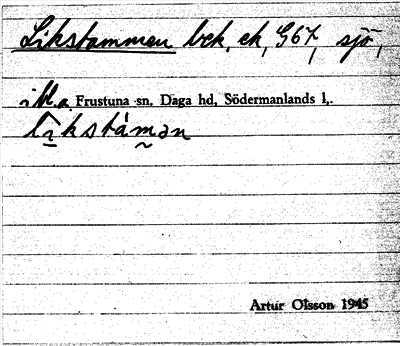 Likstammen bek. ek. G67, sjö,
Frustuna sn, Daga hd, Södermanlands l.
līkstámən
Artur Olsson 1945